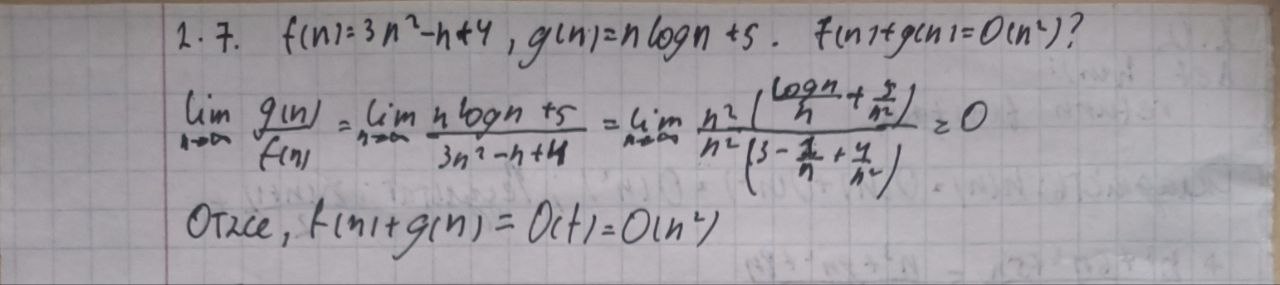 2.7. f(n)=3n²-n+4, g(n)=n logn +5. f(n)+g(n)=O(n²)?
lim n→∞ g(n)/f(n) = lim n→∞ (n logn +5)/(3n²-n+4) = lim n→∞ n²(logn/n + 5/n²)/n²(3 - 1/n + 4/n²) = 0
Отже, f(n)+g(n) = O(f)=O(n²)